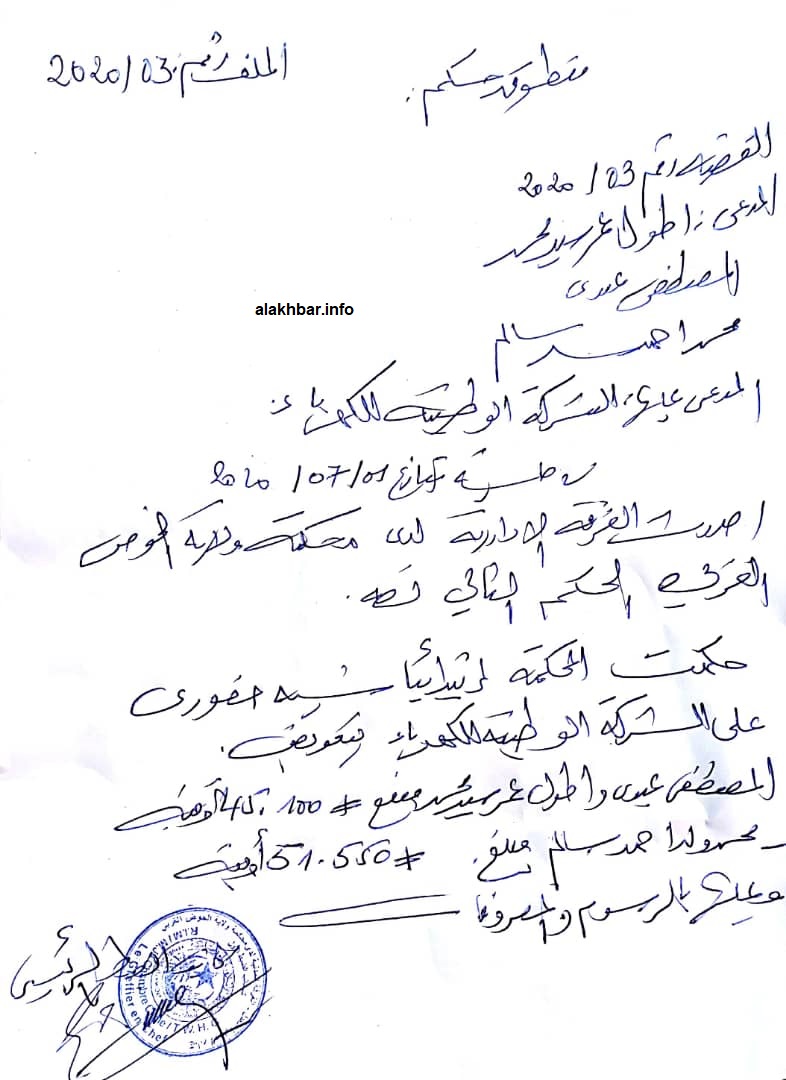 منطوق حكم:
الملف رقم: 03/2020
القضية رقم 03/2020
المدعى: اطول عمر سيد محمد
المصطفى عبدى
alakhbar.info
محمد احمد سالم
المدعى عليها: الشركة الوطنية للكهرباء
بتاريخ 01/07/2020
اصدرت الغرفة الادارية لدى محكمة ولاية الحوض
الغربي الحكم التالي نصه.
حكمت المحكمة ابتدائيا شبه حضورى
على الشركة الوطنية للكهرباء بتعويض.
المصطفى عبدى واطول عمر سيد محمد مبلغ # 45.100 أوقية
محمد ولد احمد سالم مبلغ. # 51.550 أوقية
وعليها بالرسوم والمصروفات
كاتب الضبط الرئيسي
Le Greffier en Chef